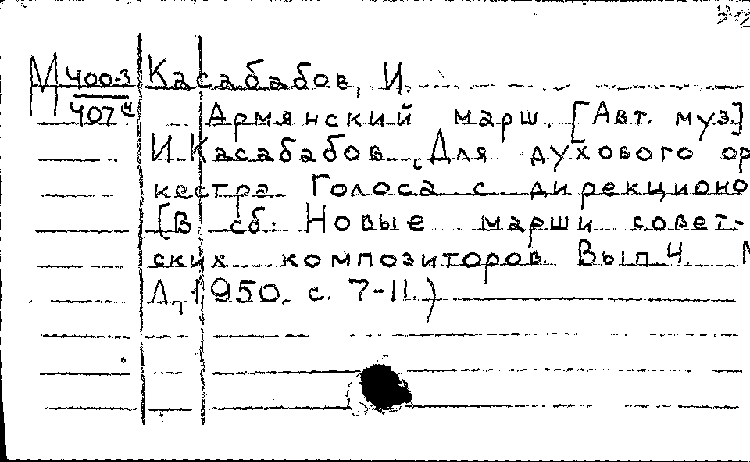 М 400-3 Касабабов, И.
407 Армянский марш. [Авт. муз.]
И. Касабабов. Для духового ор
кестра. Голоса с дирекционо
[В сб. Новые марши совет-
ских композиторов. Вып. 4. М
Л, 1950. с. 7-11.)